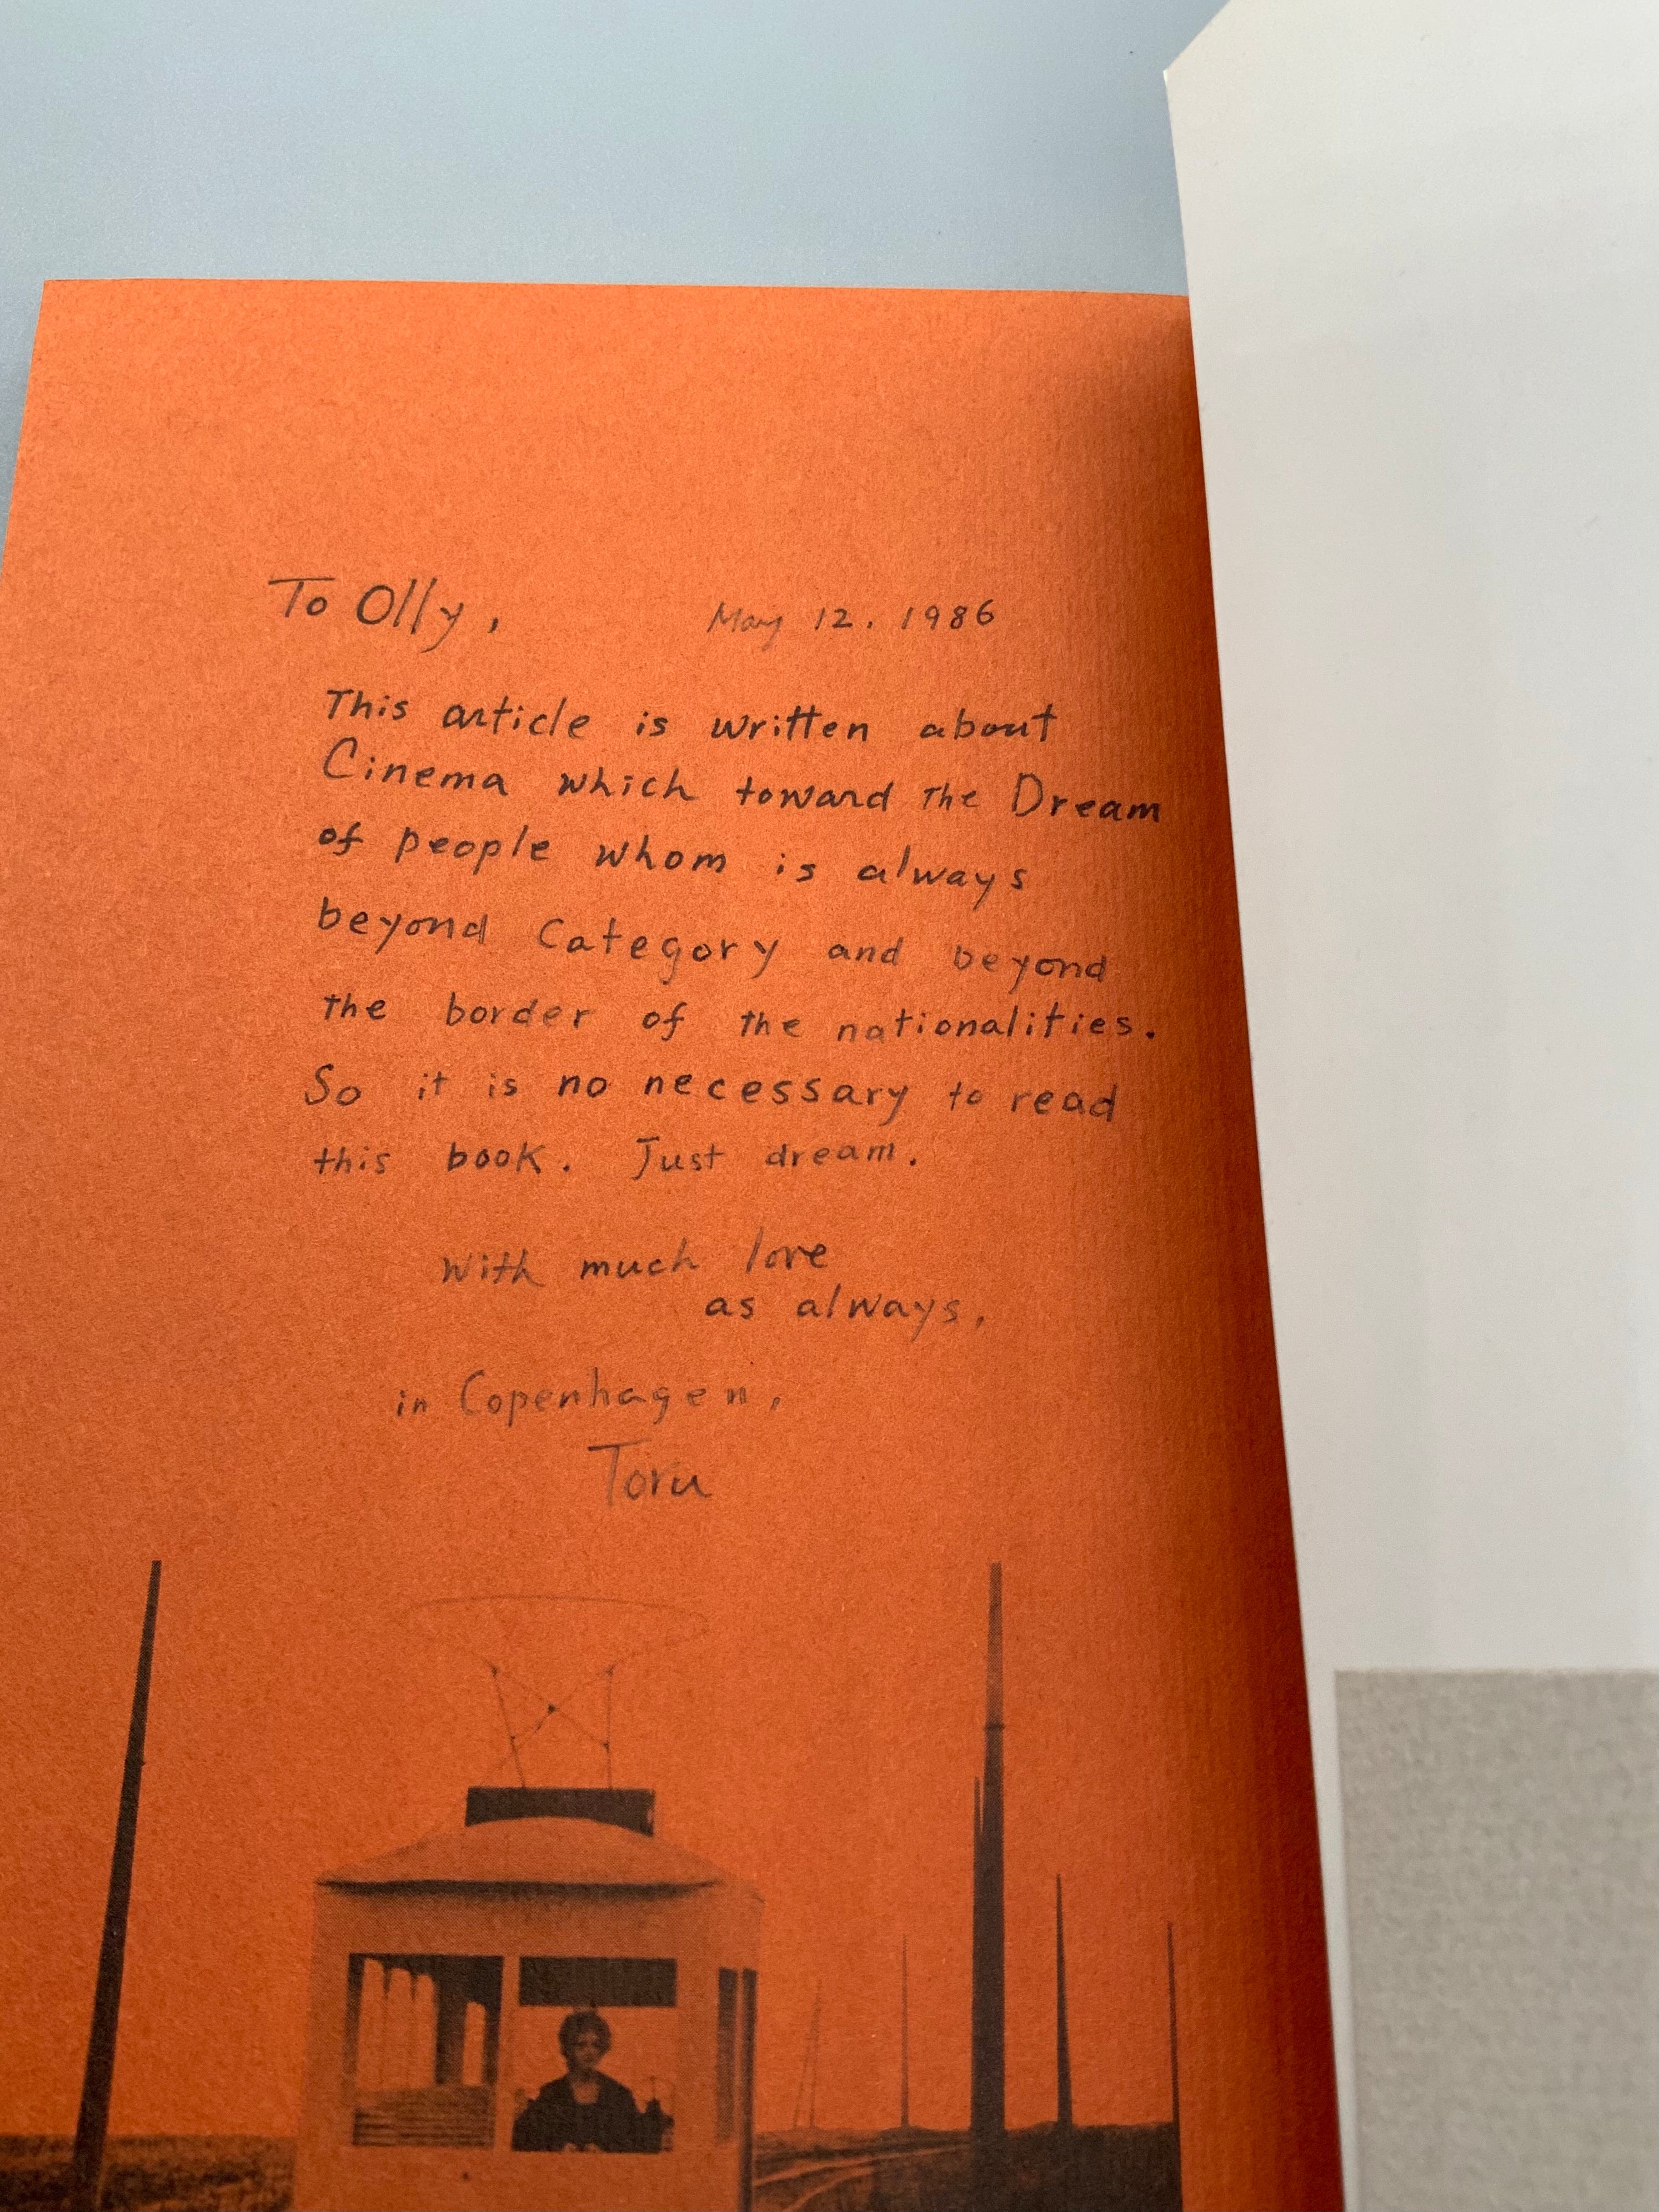 To Olly, May 12. 1986
This article is written about
Cinema which toward the Dream
of people whom is always
beyond Category and beyond
the border of the nationalities.
So it is no necessary to read
this book. Just dream.
With much love
as always,
in Copenhagen,
Toru